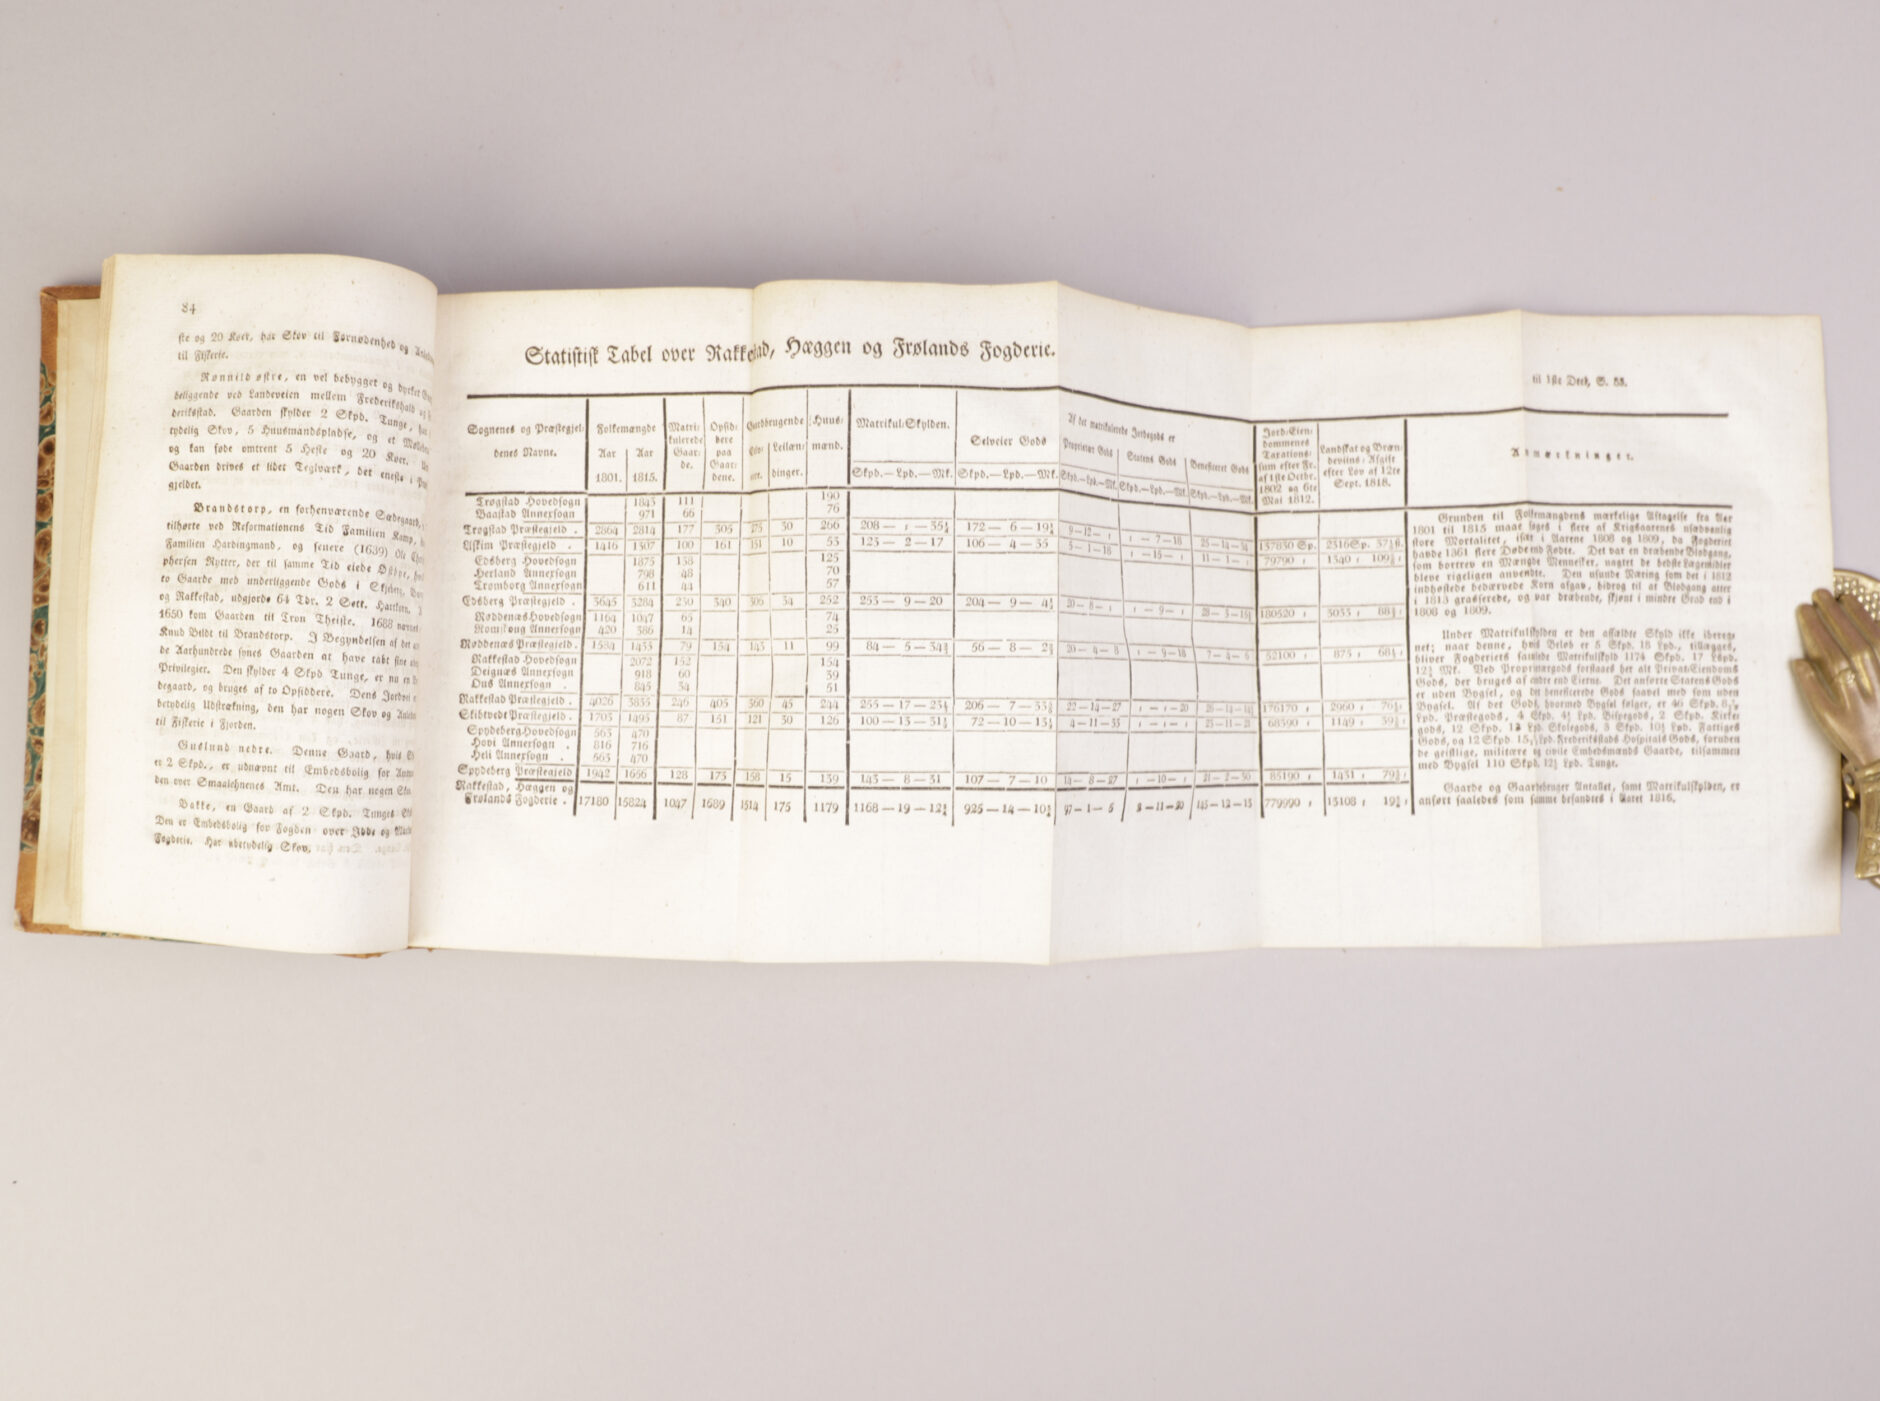 84
ste og 20 Køer, har Skov til Fornødenhed og
til Fiskerie.
Rønnild østre, en vel bebygget og dyrket
beliggende ved Landeveien mellem Frederikshald og
deriksstad. Gaarden skylder 2 Skpd. Tunge, har
tydelig Skov, 5 Huusmandspladse, og et
og kan føde omtrent 5 Heste og 20 Køer.
Gaarden drives et lidet Teglværk, det eneste i
gjeldet.
Brandstorp, en forhenværende Sædegaard,
tilhørte ved Reformationens Tid Familien Kamp,
Familien Hardingmand, og senere (1639) Ole
phersen Nytter, der til samme Tid eiede
to Gaarde med underliggende Gods i Skjeberg,
og Rakkestad, udgjorde 64 Tdr. 2 Sett. Hartkorn.
1650 kom Gaarden til Tron Theiste. 1688
Knud Bildt til Brandstorp. I Begyndelsen af det
de Aarhundrede synes Gaarden at have tabt sine
Privilegier. Den skylder 4 Skpd Tunge, er nu en
degaard, og bruges af to Opsiddere. Dens Jordvei
betydelig Udstrækning, den har nogen Skov og
til Fiskerie i Fjorden.
Guslund nedre. Denne Gaard, hvis
er 2 Skpd., er udnævnt til Embedsbolig for
den over Smaalehnenes Amt. Den har nogen
Bakke, en Gaard af 2 Skpd. Tunges
Den er Embedsbolig for Fogden over Idde og
Fogderie. Har ubetydelig Skov.
Statistisk Tabel over Rakkestad, Hæggen og Frølands Fogderie.
til 1ste Deel, S. 83.
Sognenes og Præstegjel- Folkemængde Matri- Opsid- Gaardbrugende Huus- Matrikul-Skylden. Af det matrikulerede Jordegods er Jord-Eien-
denes Navne. Aar Aar kulerede dere Leilæn- mænd. Selveier Gods Proprietær Gods Statens Gods Beneficeret Gods dommenes Landskat og Bræn- Anmærkninger.
1801. 1815. Gaar- paa dinger. Skpd.—Lpd.—Mk. Skpd.—Lpd.—Mk. Skpd.—Lpd.—Mk. Skpd.—Lpd.—Mk. Skpd.—Lpd.—Mk. Taxations- deviins-Afgift
de. Gaar- sum efter Fr. efter Lov af 12te
dene. af 1ste Octbr. Sept. 1818.
1802 og 6te
Mai 1812.
Trøgstad Hovedsogn 1843 111 190
Baastad Annexsogn 971 66 76
Trøgstad Præstegjeld . 2864 2814 177 305 275 30 266 208 — , — 35¼ 172 — 6 — 19¼ 9—12— , , — 7—18 137830 Sp. 2316 Sp.
Askim Præstegjeld . 1416 1307 100 161 151 10 53 123 — 2 — 17 106 — 4 — 35 3—1—18 , —15— , 11—1— , 79790 , 1340 ,
Edsberg Hovedsogn 1875 138 125
Herland Annexsogn 798 48 70
Tromborg Annexsogn 611 44 57
Edsberg Præstegjeld . 3645 3284 230 340 306 34 252 253 — 9 — 20 204 — 9 — 4¼ 20—8— , , —9— , 180520 , 3033 ,
Røddenæs Hovedsogn 1164 1047 65 74
Romskoug Annexsogn 420 386 14 25
Røddenæs Præstegjeld . 1584 1433 79 154 143 11 99 84 — 5 — 34 56 — 8 — 2 20—4—8 , —9—18 7—4—6 52100 , 875 ,
Rakkestad Hovedsogn 2072 152 154
Deignæs Annexsogn 918 60 39
Ous Annexsogn . 845 34 51
Rakkestad Præstegjeld . 4026 3835 246 405 360 45 244 255 — 17 — 23 206 — 7 — 33 22—14—27 , — , — 20 176170 , 2960 ,
Skibtvedt Præstegjeld . 1703 1495 87 151 121 30 126 100 — 13 — 31 72 — 10 — 13 4—11—35 , — , — , 23—11—21 68390 , 1149 ,
Spydeberg Hovedsogn 563 470
Hovi Annexsogn . 816 716
Heli Annexsogn . 563 470
Spydeberg Præstegjeld 1942 1656 128 173 158 15 139 143 — 8 — 31 107 — 7 — 10 14—8—27 , —10— , 21—2—30 85190 , 1431 ,
Rakkestad, Hæggen og
Frølands Fogderie . 17180 15824 1047 1689 1514 175 1179 1168 — 19 — 12¼ 925 — 14 — 10¼ 97—1—5 2—11—20 143—12—13 779990 , 13108 ,
Grunden til Folkemængdens mærkelige Aftagelse fra Aar
1801 til 1815 maae søges i flere af Krigsaarenes usædvanlig
store Mortalitet, især i Aarene 1808 og 1809, da Fogderiet
havde 1361 flere Døde end Fødte. Det var en dræbende Blodgang,
som bortrev en Mængde Mennesker, uagtet de bedste Lægemidler
bleve rigeligen anvendte. Den usunde Næring som det i 1812
indhøstede bedærvede Korn afgav, bidrog til at Blodgang atter
i 1813 grasserede, og var dræbende, skjønt i mindre Grad end i
1808 og 1809.
Under Matrikulskylden er den affældte Skyld ikke ibereg-
net; naar denne, hvis Beløb er 5 Skpd. 18 Lpd., tillægges,
bliver Fogderiets samlede Matrikulskyld 1174 Skpd. 17 Lspd.
12¼ Mk. Ved Proprietærgods forstaaes her alt Privat-Eiendoms
Gods, der bruges af andre end Eierne. Det anførte Statens Gods
er uden Bygsel, og det beneficerede Gods saavel med som uden
Bygsel. Af det Gods, hvormed Bygsel følger, er 46 Skpd.
Lpd. Præstegods, 4 Skpd. 4½ Lpd. Bispegods, 2 Skpd. Kirke-
gods, 12 Skpd. Lpd. Skolegods, 3 Skpd. 10½ Lpd. Fattiges
Gods, og 12 Skpd. Lpd. Frederiksstads Hospitals Gods, foruden
de geistlige, militære og civile Embedsmænds Gaarde, tilsammen
med Bygsel 110 Skpd. 12½ Lpd. Tunge.
Gaarde og Gaardebruger Antallet, samt Matrikulskylden, er
anført saaledes som samme befandtes i Aaret 1816.